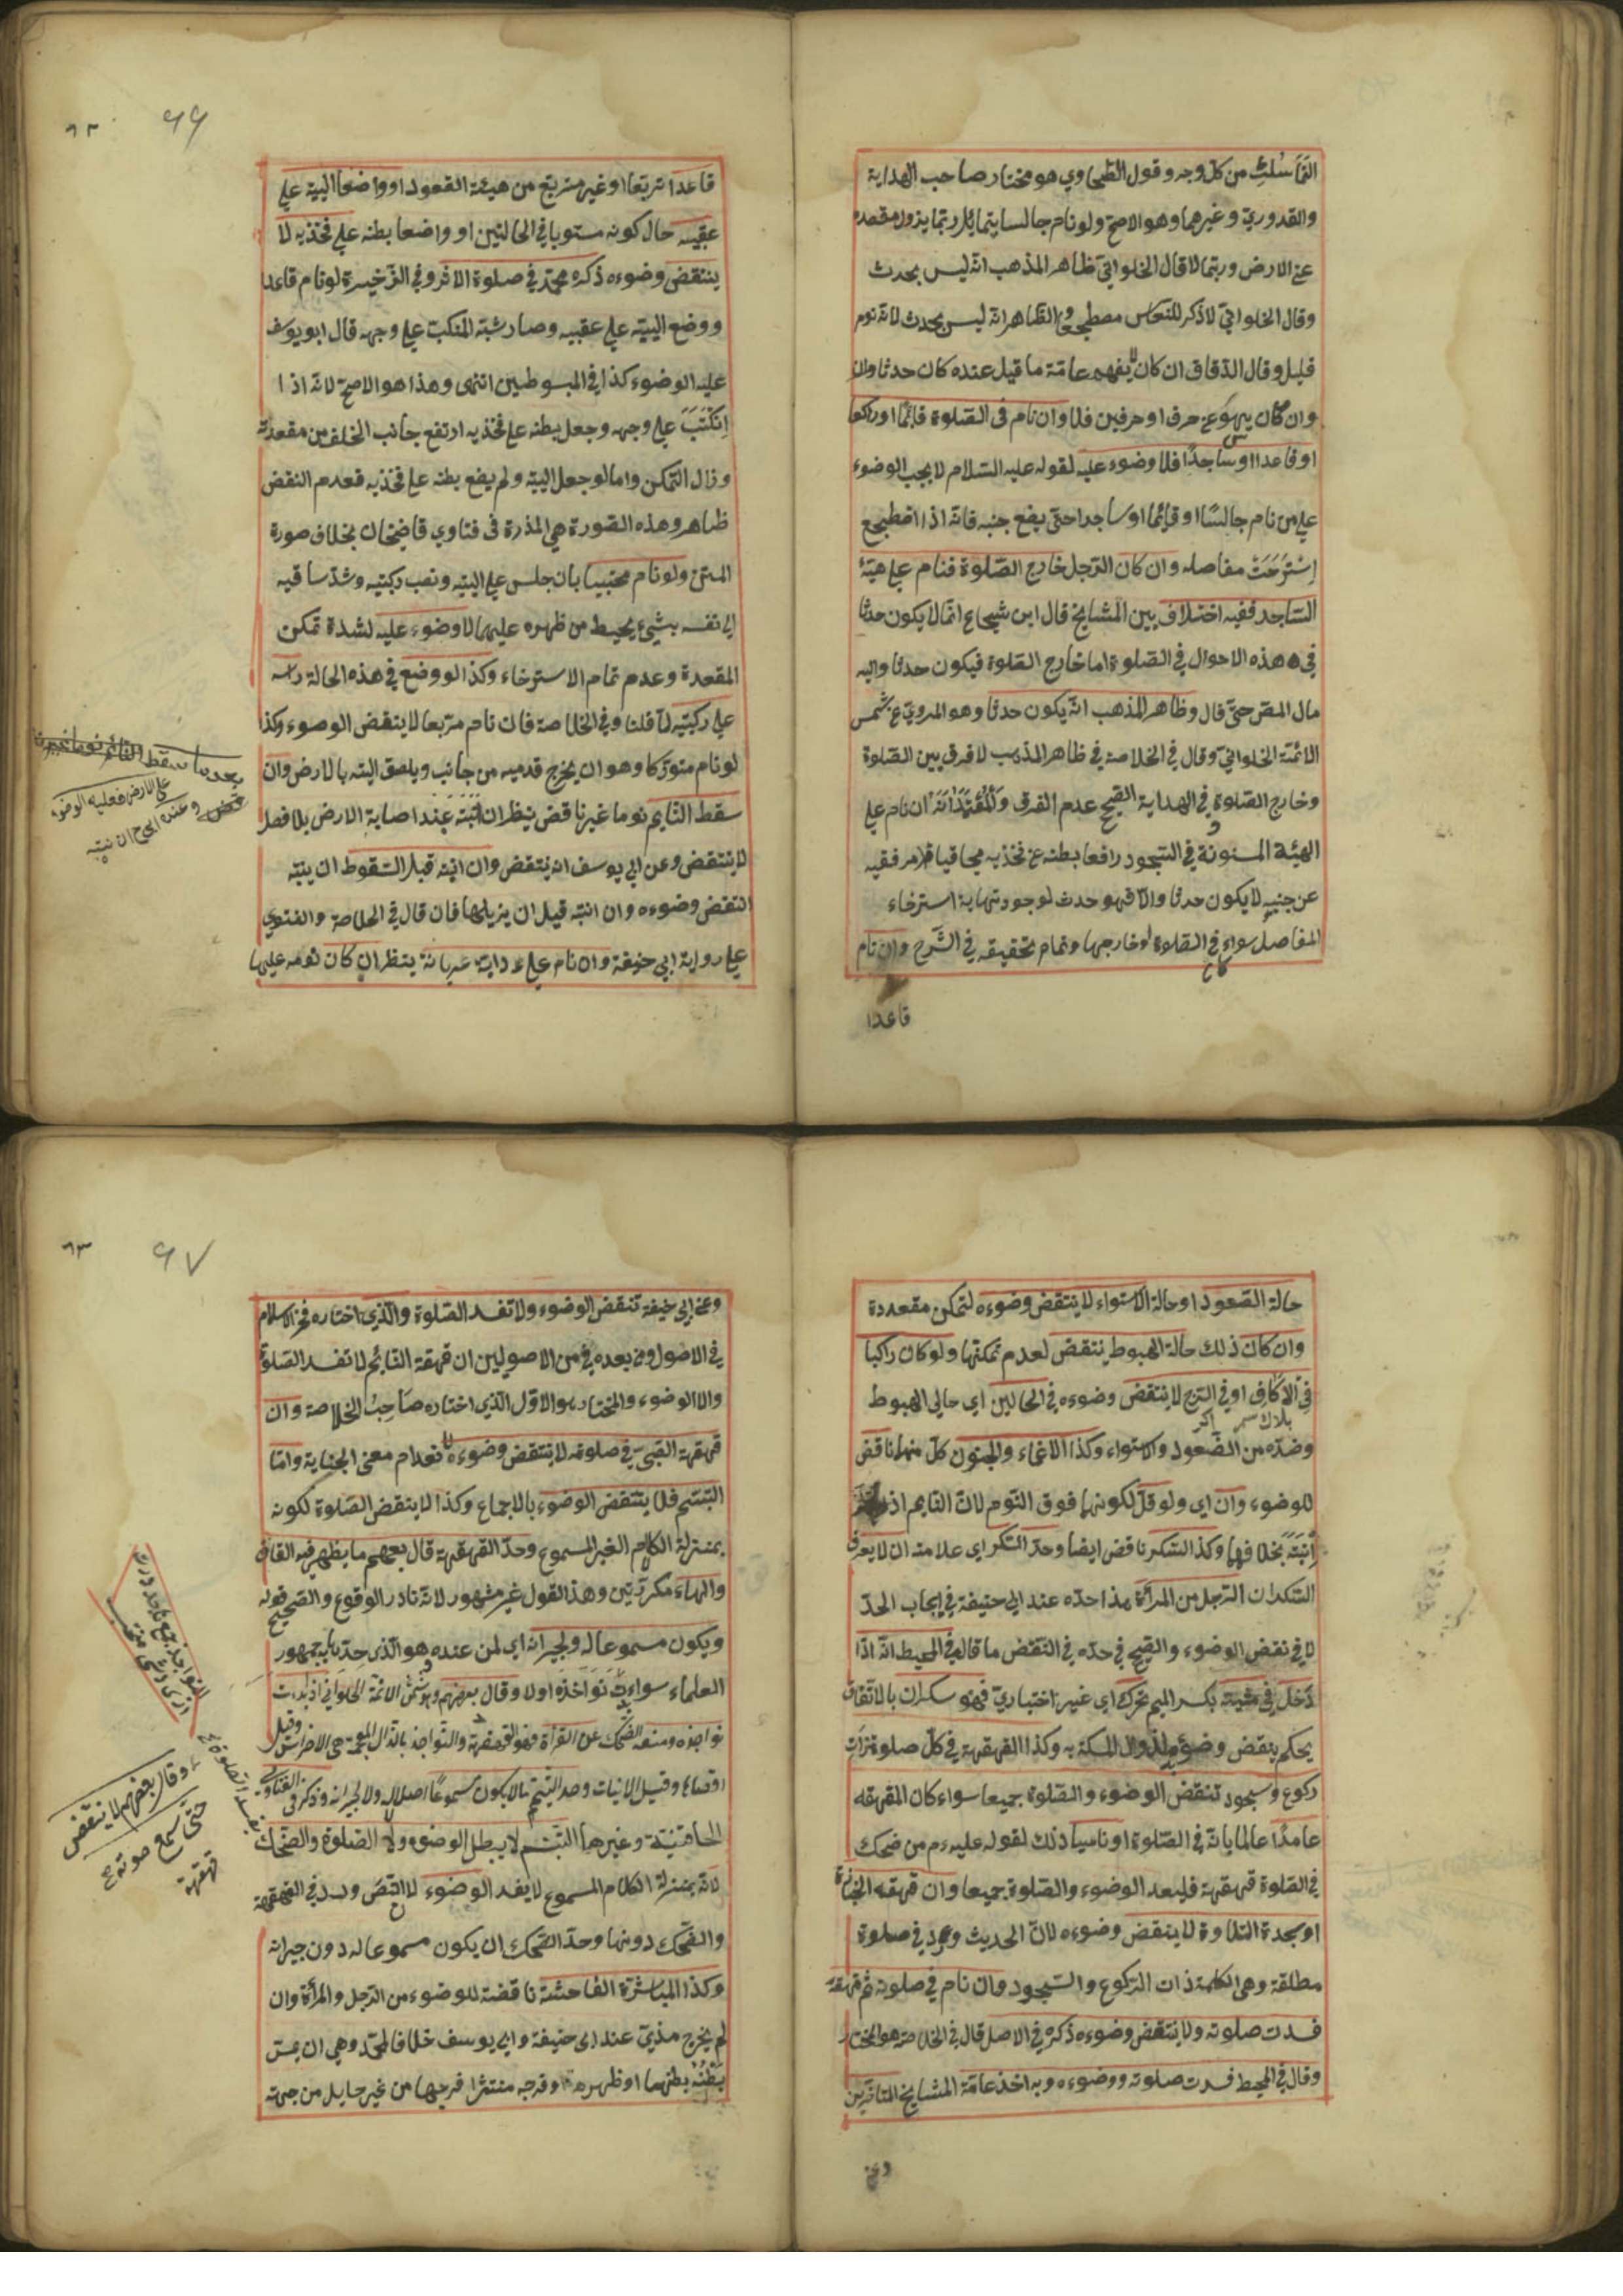 التماسك من كل وجه وقول الطحاوي هو مختار صاحب الهداية
والقدوري وغيرهما وهو الاصح ولو نام جالسا يتمايل ربما يزول مقعده
عن الارض وربما لا قال الحلواني ظاهر المذهب انه ليس بحدث
وقال الحلواني لا ذكر للنعاس مضطجعا والظاهر انه ليس بحدث لانه نوم
قليل وقال الدقاق ان كان لا يفهم عامة ما قيل عنده كان حدثا
وان كان يسهو عن حرف او حرفين فلا وان نام في الصلوة قائما او راكعا
او قاعدا او ساجدا فلا وضوء عليه لقوله عليه السلام لا يجب الوضوء
على من نام جالسا او قائما او ساجدا حتى يضع جنبه فانه اذا اضطجع
استرخت مفاصله وان كان الرجل خارج الصلوة فنام على هيئة
الساجد ففيه اختلاف بين المشايخ قال ابن شجاع انما لا يكون حدثا
في هذه الاحوال في الصلوة اما خارج الصلوة فيكون حدثا واليه
مال المص حتى قال وظاهر المذهب انه يكون حدثا وهو المروي عن شمس
الائمة الحلواني وقال في الخلاصة في ظاهر المذهب لا فرق بين الصلوة
وخارج الصلوة في الهداية الصحيح عدم الفرق والمعتمد انه ان نام على
الهيئة المسنونة في السجود رافعا بطنه عن فخذيه مجافيا مرفقيه
عن جنبيه لا يكون حدثا والا فهو حدث لوجود نهاية استرخاء
المفاصل سواء في الصلوة او خارجها وتمام تحقيقه في الشرح وان نام
قاعدا
٦٢ ٦٦
قاعدا متربعا او غير متربع من هيئة القعود او واضعا اليتيه على
عقبيه حال كونه مستويا في الحالتين او واضعا بطنه على فخذيه لا
ينتقض وضوءه ذكره محمد في صلوة الاثر وفي الذخيرة لو نام قاعدا
ووضع اليتيه على عقبيه وصار شبه المنكب على وجهه قال ابو يوسف
عليه الوضوء كذا في المبسوطين انتهى وهذا هو الاصح لانه اذا
انكب على وجهه وجعل بطنه على فخذيه ارتفع جانب الخلف من مقعدته
وزال التمكن واما لو جعل اليتيه ولم يضع بطنه على فخذيه فعدم النقض
ظاهر وهذه الصورة هي المذكورة في فتاوي قاضيخان بخلاف صورة
المتن ولو نام محتبيا بان جلس على اليتيه ونصب ركبتيه وشد ساقيه
الى نفسه بشيء يحيط من ظهره عليهما لا وضوء عليه لشدة تمكن
المقعدة وعدم تمام الاسترخاء وكذا لو وضع في هذه الحالة راسه
على ركبتيه لما قلنا وفي الخلاصة فان نام متربعا لا ينتقض الوضوء وكذا
لو نام متوركا وهو ان يخرج قدميه من جانب ويلصق اليتيه بالارض وان
سقط النايم نوما غير ناقض ينظر ان انتبه عند اصابة الارض بلا فصل
لا ينتقض وعن ابي يوسف انه ينتقض وان انتبه قبل السقوط ان ينتبه
انتقض وضوءه وان انتبه قبل ان يزيلها فان قال في الخلاصة والفتوي
على رواية ابي حنيفة وان نام على دابة عريانة ينظر ان كان نومه عليها
سقط النائم نوما غير
على الارض فعليه الوضوء
وعنه الصحيح ان انتبه
حالة الصعود او حالة الاستواء لا ينتقض وضوءه لتمكن مقعدته
وان كان ذلك حالة الهبوط ينتقض لعدم تمكنها ولو كان راكبا
في الاكاف او في السرج لا ينتقض وضوءه في الحالين اي حالي الهبوط
وضده من الصعود والاستواء وكذا الاغماء والجنون كل منهما ناقض
للوضوء وان اي ولو قل لكونهما فوق النوم لان النايم اذا
انتبه بخلافهما وكذا السكر ناقض ايضا وحد السكر اي علامته ان لا يعرف
السكران الرجل من المرأة هذا حده عند ابي حنيفة في ايجاب الحد
لا في نقض الوضوء والصحيح في حده في النقض ما قاله في المحيط انه اذا
دخل في مشيته بكسر الميم تحرك اي غير اختياري فهو سكران بالاتفاق
يحكم بنقض وضوءه لزوال المسكة به وكذا القهقهة في كل صلوة ذات
ركوع وسجود تنقض الوضوء والصلوة جميعا سواء كان المقهقه
عامدا عالما بانه في الصلوة او ناسيا ذلك لقوله عليه م من ضحك
في الصلوة قهقهة فليعد الوضوء والصلوة جميعا وان قهقه في الجنازة
او سجدة التلاوة لا ينتقض وضوءه لان الحديث ورد في صلوة
مطلقة وهي الكاملة ذات الركوع والسجود وان نام في صلوته ثم قهقه
فسدت صلوته ولا ينتقض وضوءه ذكره في الاصل قال في الخلاصة هو المختار
وقال في المحيط فسدت صلوته ووضوءه وبه اخذ عامة المشايخ المتاخرين
وعن
٦٣ ٦٧
وعن ابي حنيفة تنقض الوضوء ولا تفسد الصلوة والذي اختاره فخر الاسلام
في الاصول ومن بعده من الاصوليين ان قهقهة النائم لا تفسد الصلوة
ولا الوضوء والمختار هو الاول الذي اختاره صاحب الخلاصة وان
قهقهة الصبي في صلوته لا ينتقض وضوءه لانعدام معنى الجناية واما
التبسم فلا ينتقض الوضوء بالاجماع وكذا لا ينقض الصلوة لكونه
بمنزلة الكلام الغير المسموع وحد القهقهة قال بعضهم ما يظهر فيه القاف
والهاء مكررتين وهذا القول غير مشهور لانه نادر الوقوع والصحيح قوله
ويكون مسموعا له ولجيرانه اي لمن عنده هو الذي حد به جمهور
العلماء سواء بدت نواجذه اولا وقال بعضهم وهو شمس الائمة الحلواني اذا بدت
نواجذه ومنعه الضحك عن القرأة فهو القهقهة والنواجذ بالذال المعجمة هي الاضراس وقيل
اقصاها وقيل الانياب وحد التبسم ما لا يكون مسموعا اصلا لا له ولا لجيرانه وذكر في الفتاوى
الخاقانية وغيرها التبسم لا يبطل الوضوء ولا الصلوة والضحك
لانه بمنزلة الكلام المسموع لا يفسد الوضوء لان النص ورد في القهقهة
والضحك دونها وحد الضحك ان يكون مسموعا له دون جيرانه
وكذا المباشرة الفاحشة ناقضة للوضوء من الرجل والمرأة وان
لم يخرج مذي عند ابي حنيفة وابي يوسف خلافا لمحمد وهي ان يمس
بطنه بطنها او ظهرها وفرجه منتشرا فرجها من غير حايل من جهة
يفسد الصلوة
وقال بعضهم لا ينتقض
حتى يسمع صوته
قهقهة